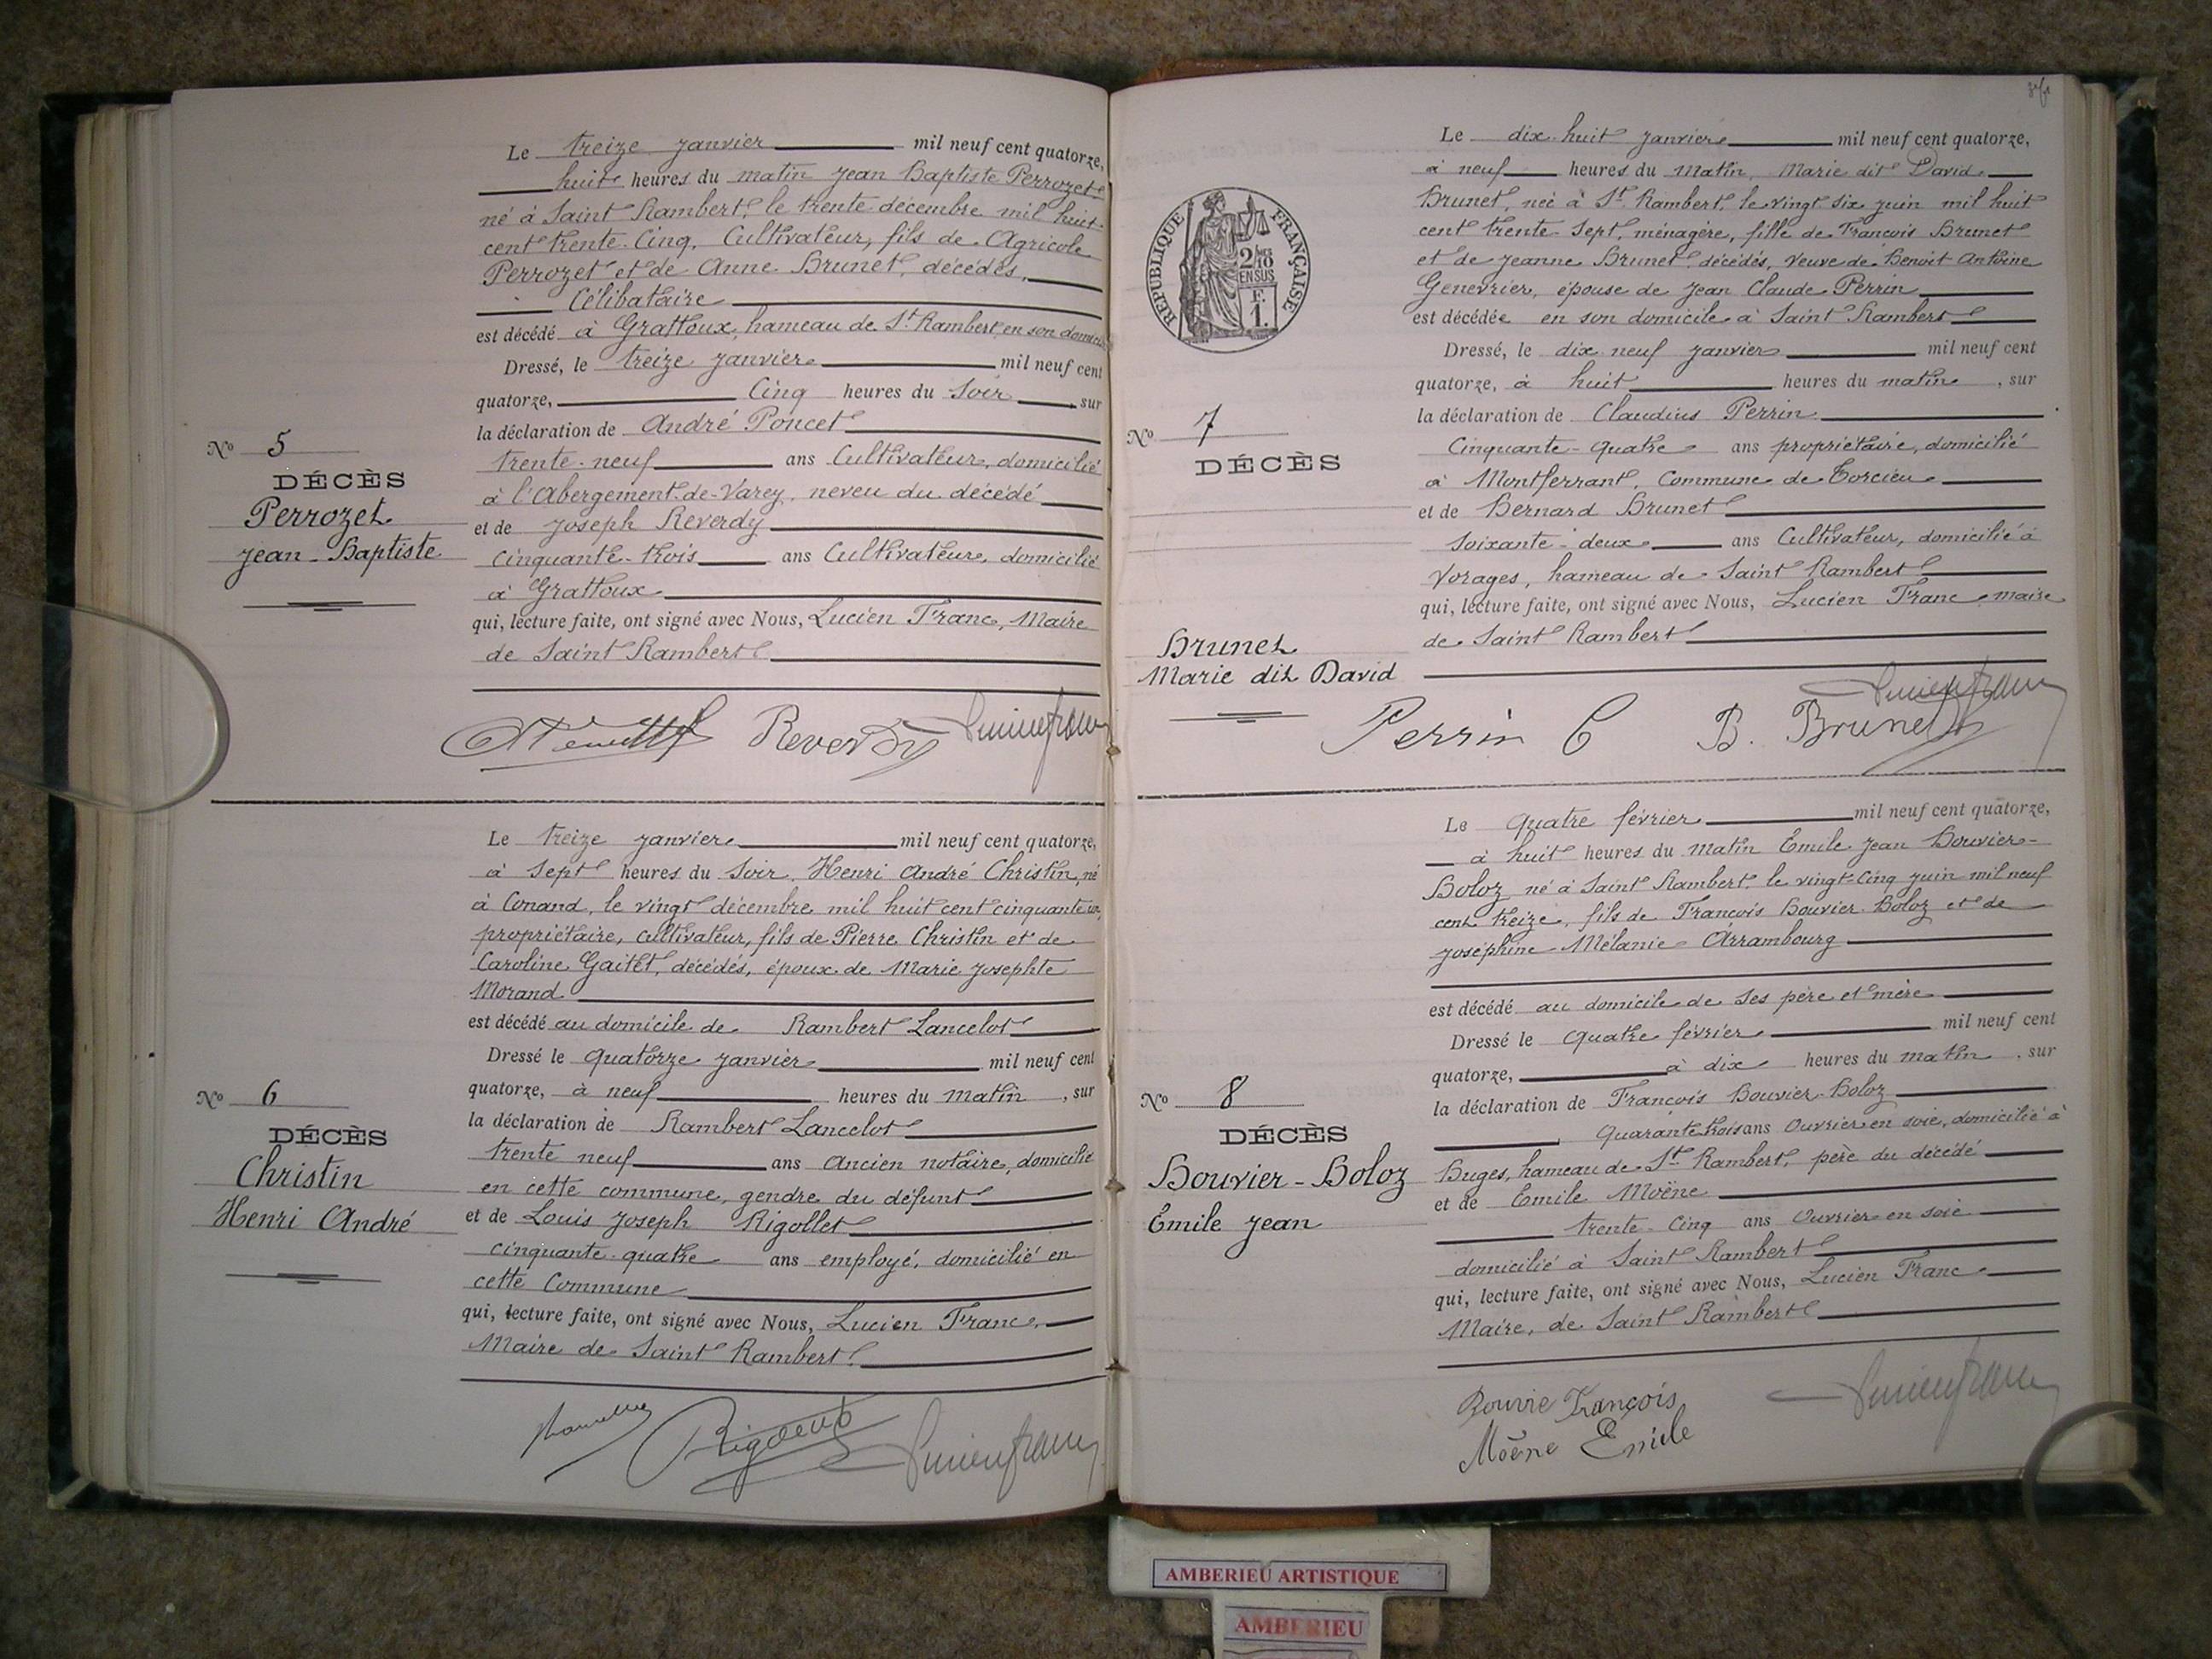 Le treize janvier mil neuf cent quatorze,
huit heures du matin Jean Baptiste Perrozet
né à Saint Rambert, le trente décembre mil huit
cent trente-cinq, Cultivateur, fils de Agricole
Perrozet et de Anne Brunet, décédés,
Célibataire
est décédé à Grattoux, hameau de St Rambert, en son domicile
Dressé, le treize janvier mil neuf cent
quatorze, Cinq heures du Soir, sur
la déclaration de André Poncet
trente-neuf ans Cultivateur, domicilié
à l'Abergement-de-Varey, neveu du décédé
et de Joseph Reverdy
cinquante-trois ans Cultivateur, domicilié
à Grattoux
qui, lecture faite, ont signé avec Nous, Lucien Franc, Maire
de Saint Rambert
No 5
DÉCÈS
Perrozet
Jean-Baptiste
Reverdy Lucien franc
Le treize janvier mil neuf cent quatorze,
à sept heures du Soir, Henri André Christin, né
à Conand, le vingt décembre mil huit cent cinquante un,
propriétaire, cultivateur, fils de Pierre Christin et de
Caroline Gaitet, décédés, époux de Marie Josephte
Morand
est décédé au domicile de Rambert Lancelot
Dressé le quatorze janvier mil neuf cent
quatorze, à neuf heures du matin, sur
la déclaration de Rambert Lancelot
trente neuf ans ancien notaire, domicilié
en cette commune, gendre du défunt
et de Louis Joseph Rigollet
cinquante-quatre ans employé, domicilié en
cette Commune
qui, lecture faite, ont signé avec Nous, Lucien Franc,
Maire de Saint Rambert
No 6
DÉCÈS
Christin
Henri André
Lucien franc
REPUBLIQUE FRANÇAISE
2/10
EN SUS
F.
1.
Le dix-huit janvier mil neuf cent quatorze,
à neuf heures du matin, Marie dit David
Brunet, née à St Rambert, le vingt six juin mil huit
cent trente-sept, ménagère, fille de François Brunet
et de Jeanne Brunet, décédés, veuve de Benoit Antoine
Genevrier, épouse de Jean Claude Perrin
est décédée en son domicile à Saint Rambert
Dressé, le dix-neuf janvier mil neuf cent
quatorze, à huit heures du matin, sur
la déclaration de Claudius Perrin
Cinquante-quatre ans propriétaire, domicilié
à Montferrant, Commune de Torcieu
et de Bernard Brunet
soixante-deux ans Cultivateur, domicilié à
Vorages, hameau de Saint Rambert
qui, lecture faite, ont signé avec Nous, Lucien Franc, maire
de Saint Rambert
No 7
DÉCÈS
Brunet
Marie dit David
Lucien franc
Perrin C B. Brunet
Le quatre février mil neuf cent quatorze,
à huit heures du matin Émile Jean Bouvier-
Boloz né à Saint Rambert, le vingt-cinq juin mil neuf
cent treize, fils de François Bouvier-Boloz et de
Joséphine-Mélanie Arrambourg
est décédé au domicile de ses père et mère
Dressé le quatre février mil neuf cent
quatorze, à dix heures du matin, sur
la déclaration de François Bouvier-Boloz
Quarante trois ans Ouvrier en soie, domicilié à
Buges, hameau de St Rambert, père du décédé
et de Emile Moëne
trente-cinq ans Ouvrier en soie
domicilié à Saint Rambert
qui, lecture faite, ont signé avec Nous, Lucien Franc
Maire, de Saint Rambert
No 8
DÉCÈS
Bouvier-Boloz
Émile Jean
Bouvie François
Lucien franc
Moëne Emile
AMBERIEU ARTISTIQUE
AMBERIEU